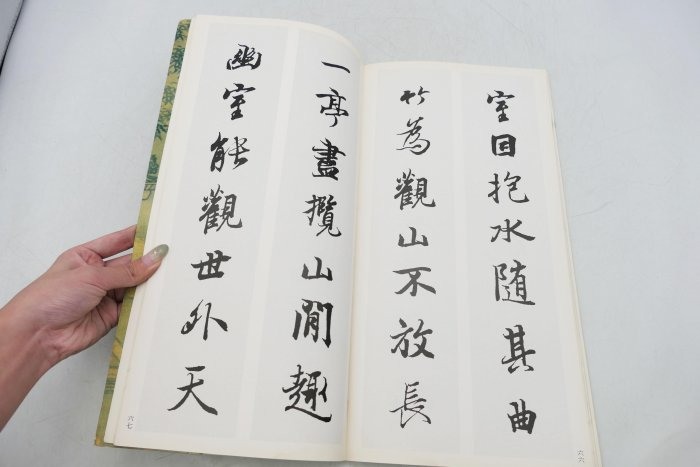 室因抱水随其曲
竹為觀山不放長
六六
一亭盡攬山間趣
幽室能觀世外天
六七